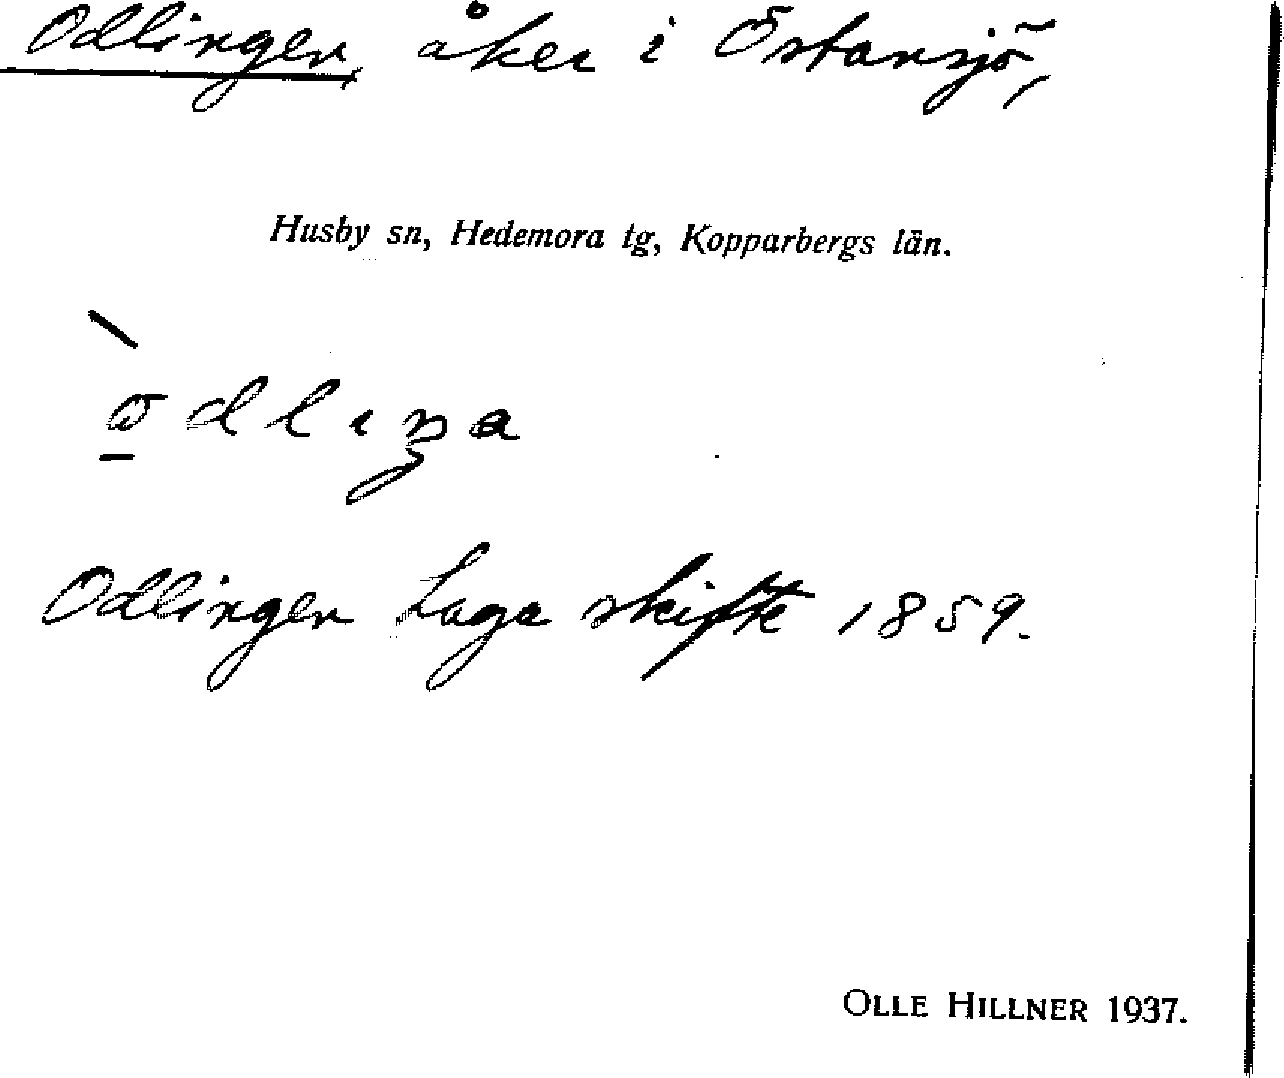 Odlingen, åker i Östansjö,
Husby sn, Hedemora tg, Kopparbergs län.
Odlingen Laga skifte 1859.
OLLE HILLNER 1937.